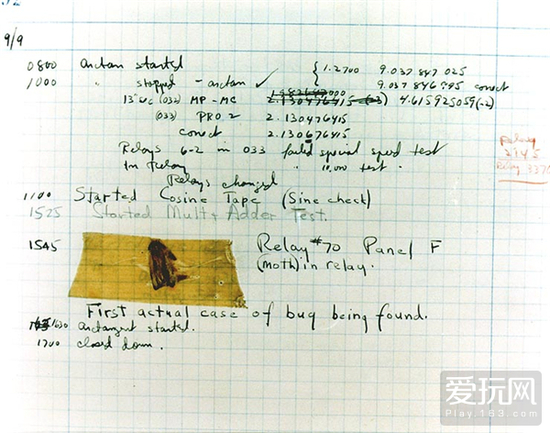 9/9
0800 Antan started
1000 " stopped - antan ✓ { 1.2700 9.037 847 025
9.037 846 995 correct
13"uc (032) MP - MC 2.130476415 4.615925059(-2)
(033) PRO 2 2.130476415
correct 2.130676415
Relays 6-2 in 033 failed special speed test
In Relay " 10,000 test.
Relays changed
Relay
2145
Relay 3370
1100 Started Cosine Tape (Sine check)
1525 Started Mult + Adder Test.
1545 Relay #70 Panel F
(moth) in relay.
First actual case of bug being found.
1630 Antangent started.
1700 closed down.
爱玩网
Play.163.com